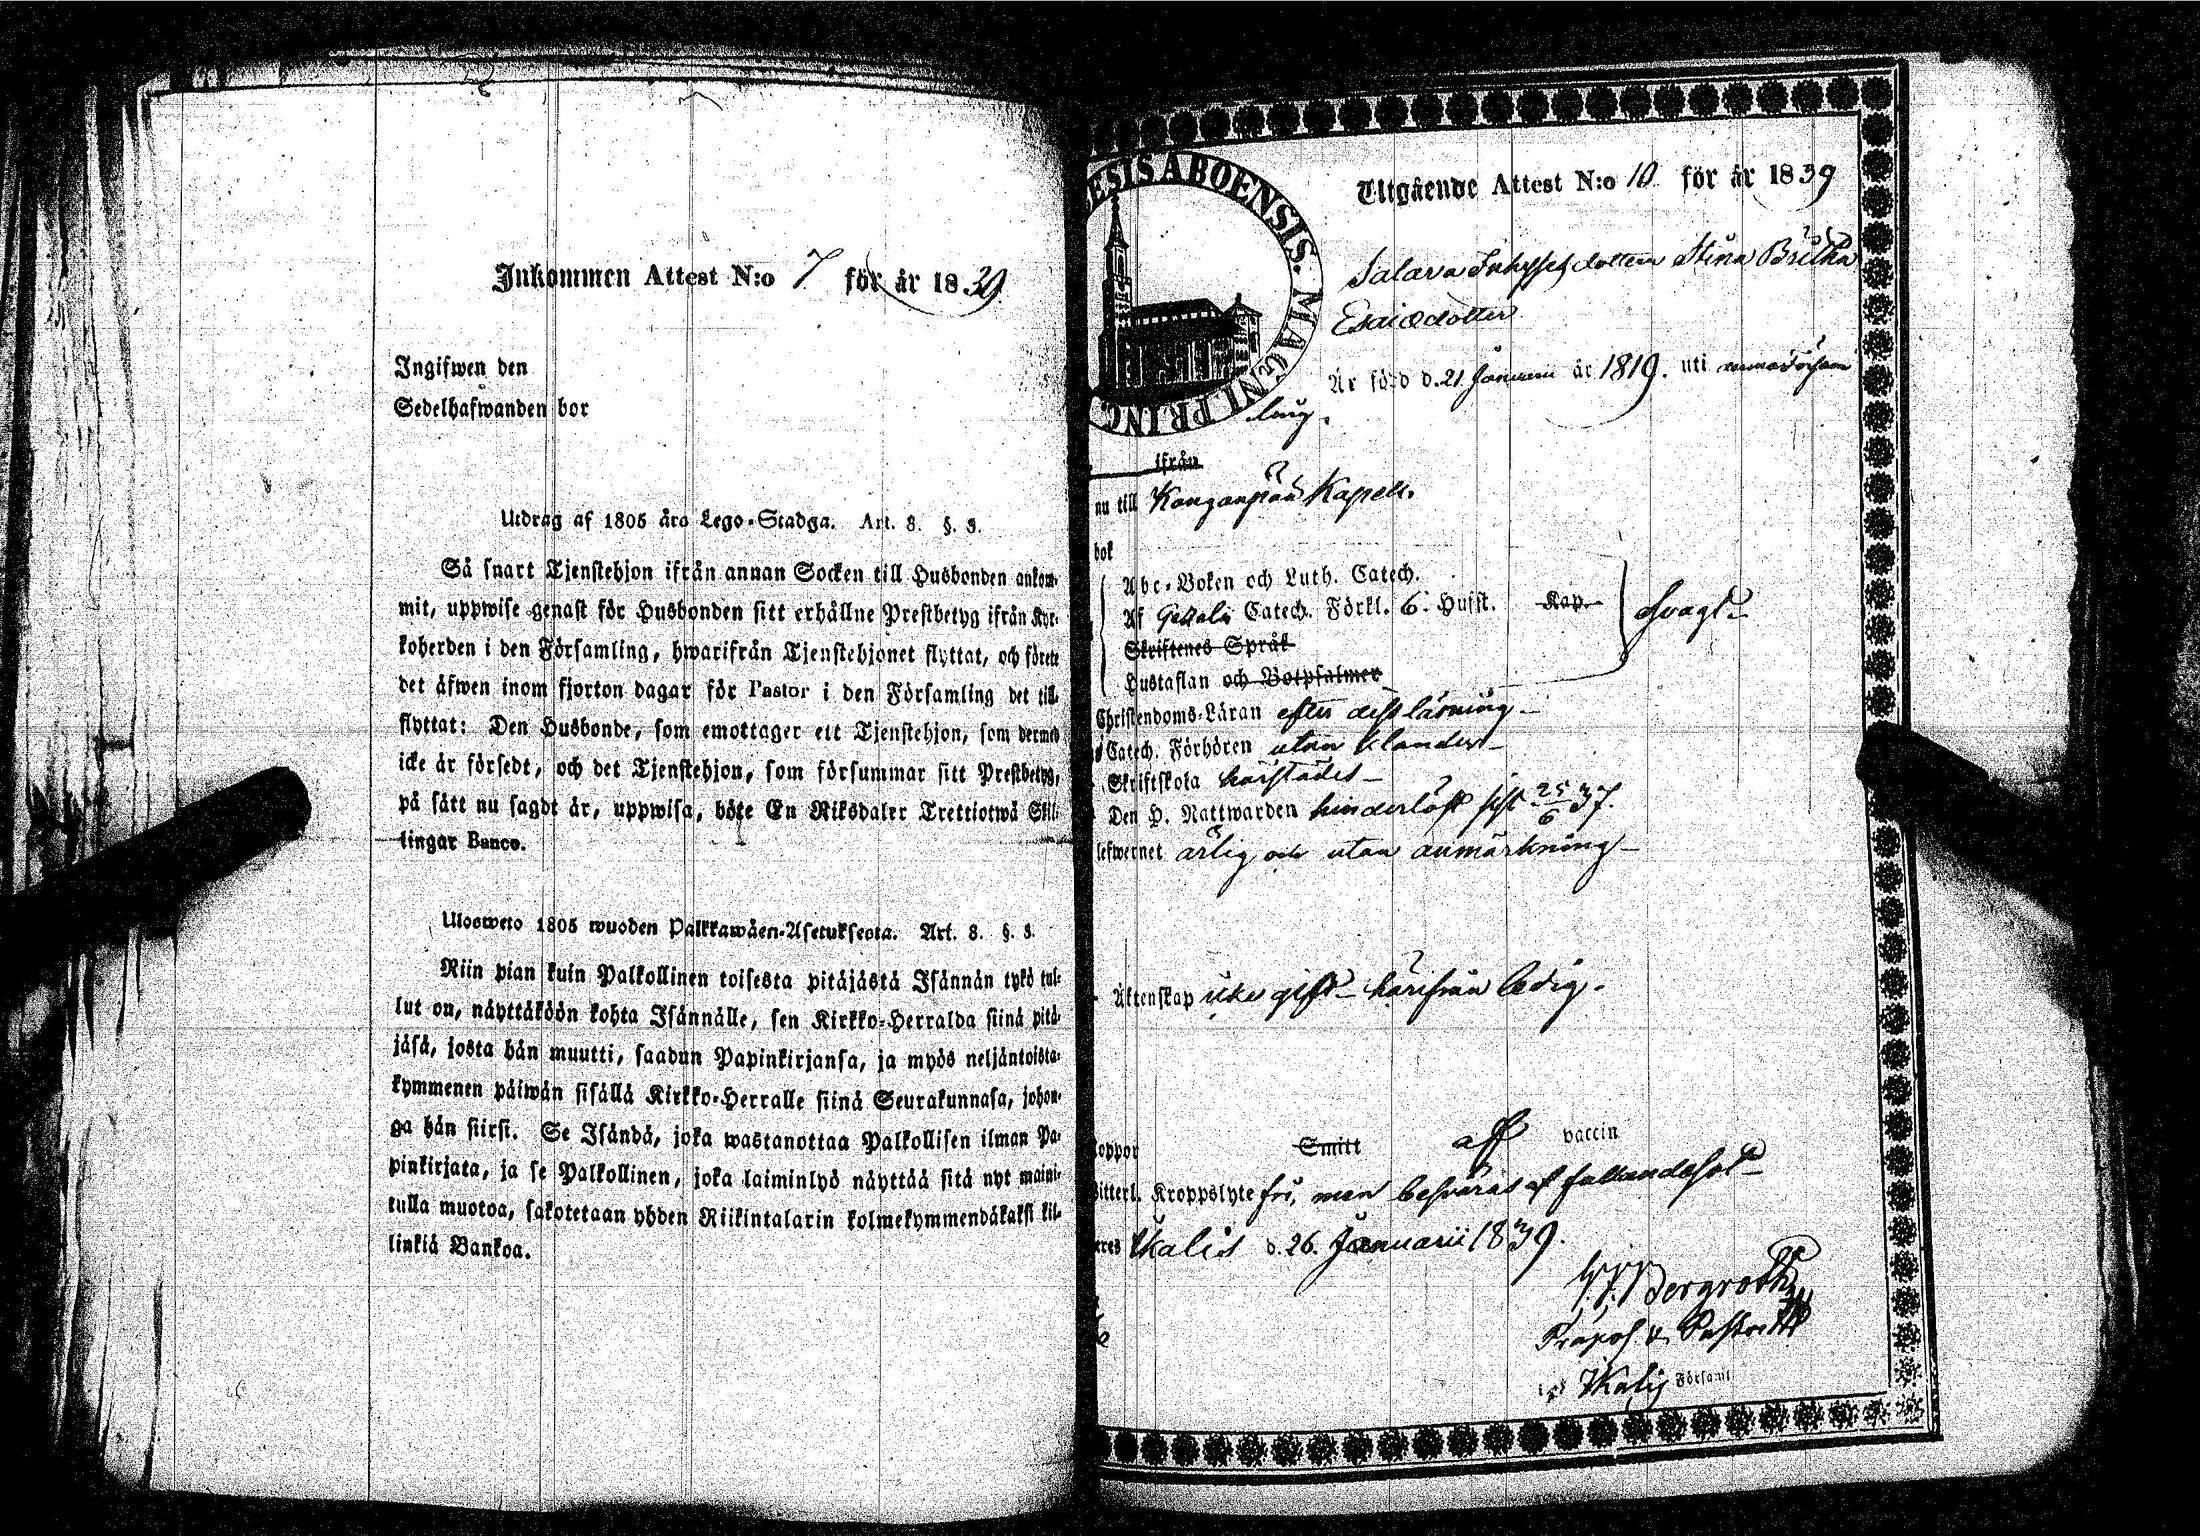 Inkommen Attest N:o 7 för år 1839.
Ingifwen den
Sedelhafwanden bor
Utdrag af 1805 års Lego-Stadga. Art. 8. §. 3.
Så snart Tjenstehjon ifrån annan Socken till Husbonden ankom-
mit, uppwise genast för Husbonden sitt erhållne Prestbetyg ifrån Kyr-
koherden i den Församling, hwarifrån Tjenstehjonet flyttat, och förete
det äfwen inom fjorton dagar för Pastor i den Församling det till-
flyttat: Den Husbonde, som emottager ett Tjenstehjon, som dermed
icke är försedt, och det Tjenstehjon, som försummar sitt Prestbetyg,
på sätt nu sagdt är, uppwisa, böte En Riksdaler Trettiotwå Skil-
lingar Banco.
Ulosweto 1805 wuoden Palkkawäen-Asetuksesta. Art. 8. §. 3.
Niin pian kuin Palkollinen toisesta pitäjästä Isännän tykö tul-
lut on, näyttäköön kohta Isännälle, sen Kirkko-Herralda siinä pitä-
jäsä, josta hän muutti, saadun Papinkirjansa, ja myös neljäntoista-
kymmenen päiwän sisällä Kirkko-Herralle siinä Seurakunnasa, johon-
ga hän siirsi. Se Isändä, joka wastanottaa Palkollisen ilman Pa-
pinkirjata, ja se Palkollinen, joka laiminlyö näyttää sitä nyt maini-
tulla muotoa, sakotetaan yhden Riikintalarin kolmekymmendäkaksi kil-
linkiä Bankoa.
ESIS ABOENSIS. MAGNI PRINC
Utgående Attest N:o 10 för år 1839
Salava Inhyses dottern Stina Britha
Esaiædotter
Är född d. 21 Januarii år 1819. uti denna Församling.
ifrån
nu till Kangaspää Kapell.
bok
Abc-Boken och Luth. Catech.
Af Gezelii Catech. Förkl. 6. Hufst. Kap. svagt
Skriftenes Språk
Hustaflan och Botpsalmer
Christendoms-Läran efter dess läsning
Catech. Förhören utan klander
Skriftskola härstädes
Den H. Nattwarden hinderlöst sist 25/6 37.
lefwernet ärlig och utan anmärkning
Äktenskap icke gift härifrån ledig.
koppor Smitt aff vaccin
Kroppslyte fri, men besväras af fallandesot
Ikalis d. 26. Januarii 1839.
Bergroth
Prapos &
Ikalis Församl